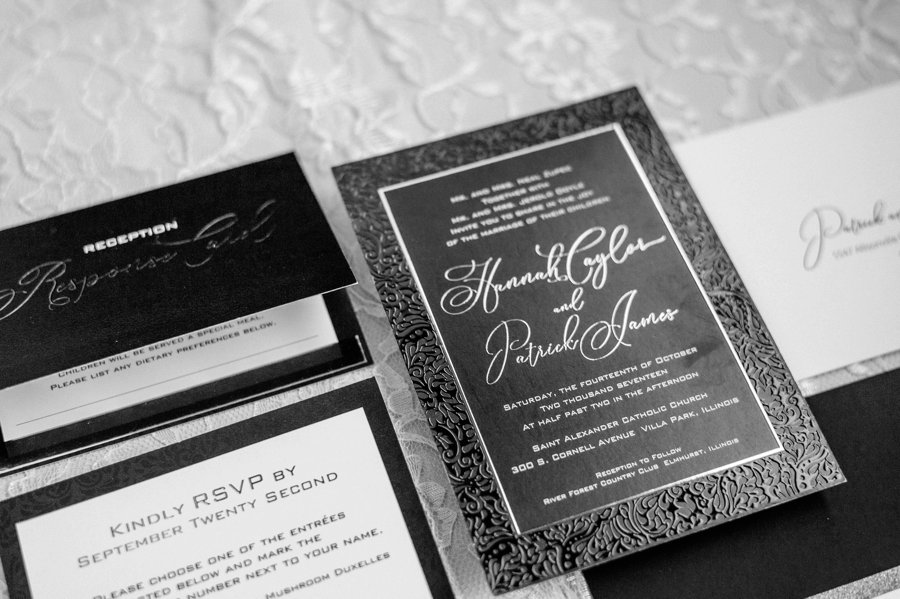 RECEPTION
Response Card
CHILDREN WILL BE SERVED A SPECIAL MEAL.
PLEASE LIST ANY DIETARY PREFERENCES BELOW.
KINDLY RSVP BY
SEPTEMBER TWENTY SECOND
PLEASE CHOOSE ONE OF THE ENTRÉES
LISTED BELOW AND MARK THE
NUMBER NEXT TO YOUR NAME.
MUSHROOM DUXELLES
MR. AND MRS. NEAL
TOGETHER WITH
MR. AND MRS. JEROLD DOYLE
INVITE YOU TO SHARE IN THE JOY
OF THE MARRIAGE OF THEIR CHILDREN
Hannah Caylor
and
Patrick James
SATURDAY, THE FOURTEENTH OF OCTOBER
TWO THOUSAND SEVENTEEN
AT HALF PAST TWO IN THE AFTERNOON
SAINT ALEXANDER CATHOLIC CHURCH
300 S. CORNELL AVENUE VILLA PARK, ILLINOIS
RECEPTION TO FOLLOW
RIVER FOREST COUNTRY CLUB ELMHURST, ILLINOIS
Patrick